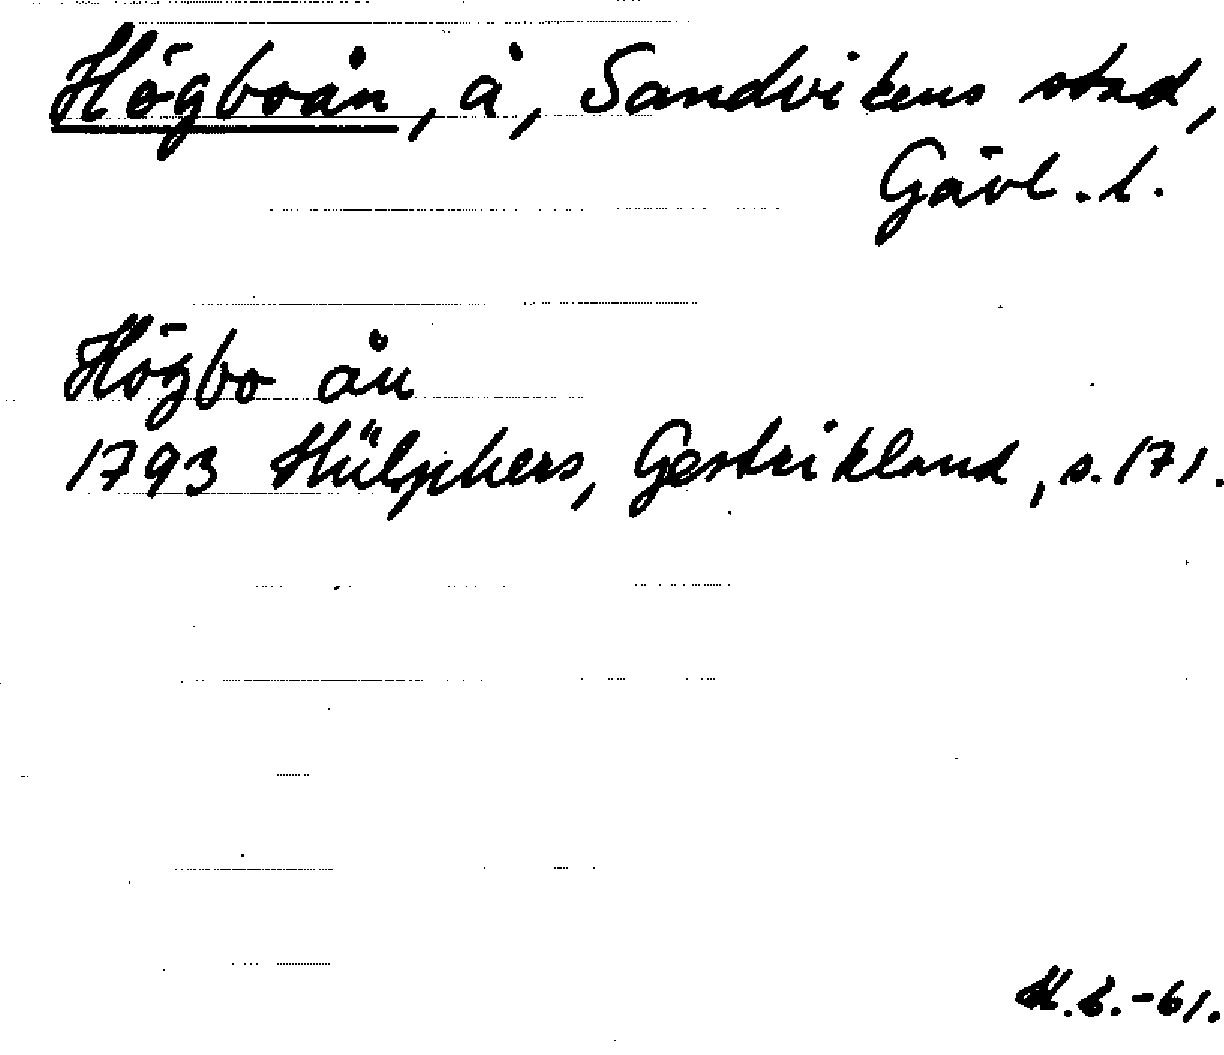 Högboån, å, Sandvikens stad,
Gävl. l.
Högbo ån
1793 Hülphers, Gestrikland, s. 171.
-61.